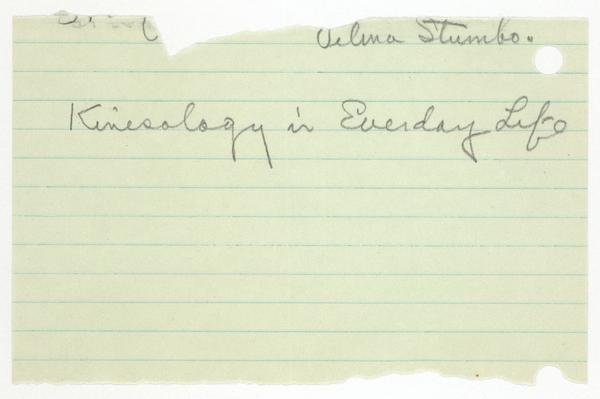 Velma Stumbo.
Kinesology in Everday Life